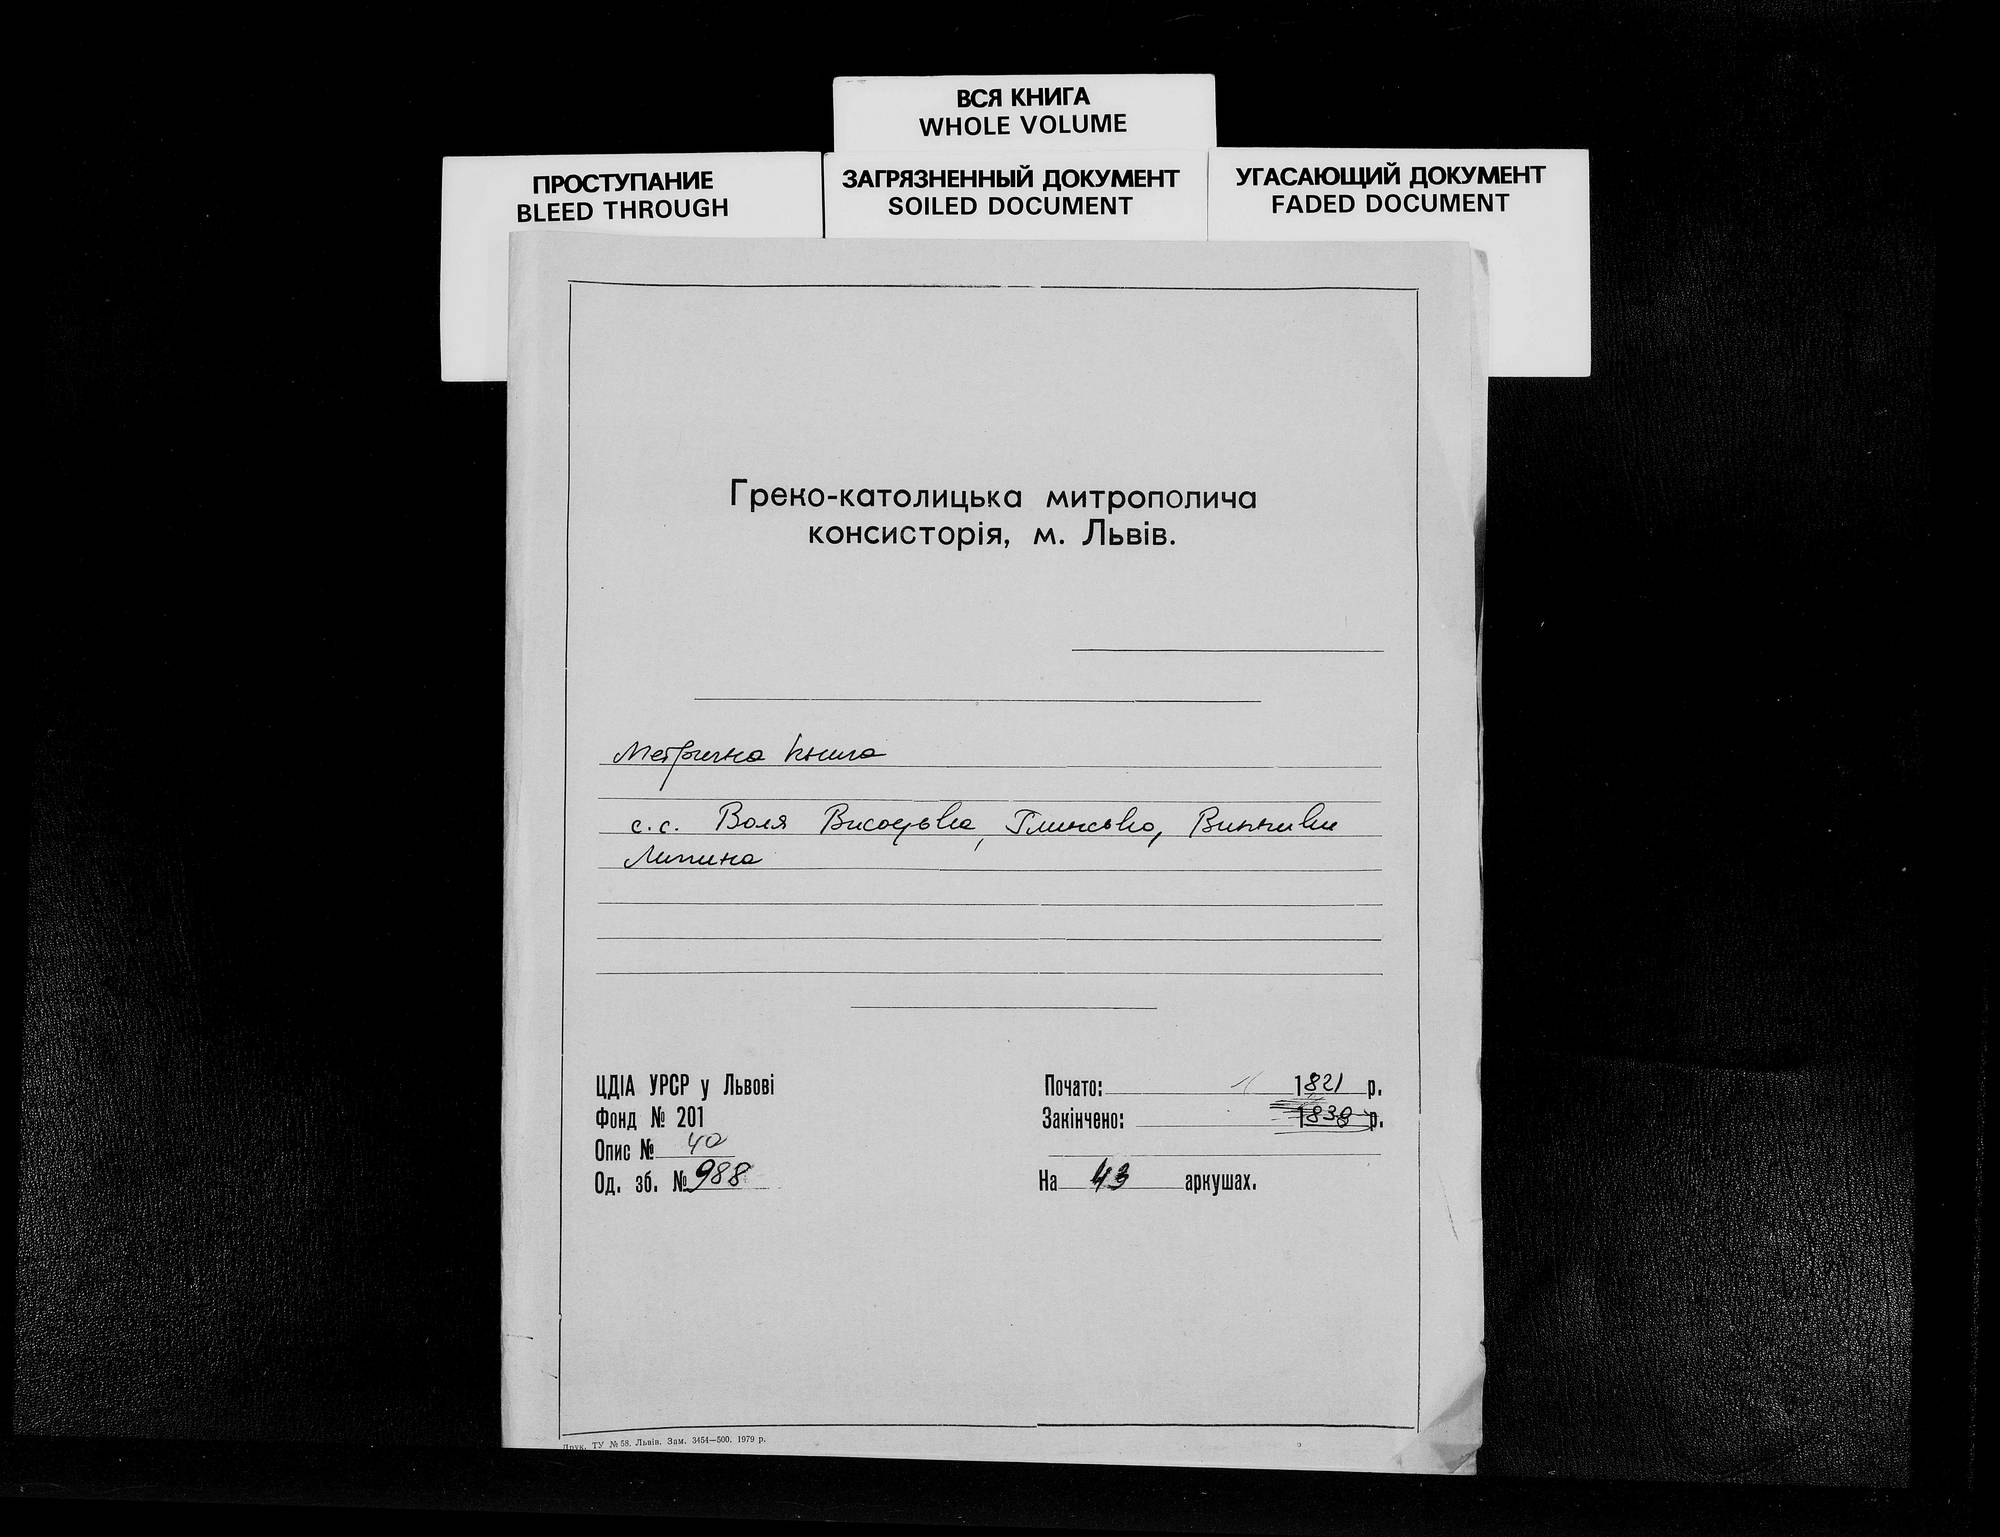 ВСЯ КНИГА
WHOLE VOLUME
ПРОСТУПАНИЕ
BLEED THROUGH
ЗАГРЯЗНЕННЫЙ ДОКУМЕНТ
SOILED DOCUMENT
УГАСАЮЩИЙ ДОКУМЕНТ
FADED DOCUMENT
Греко-католицька митрополича
консисторія, м. Львів.
Метрична книга
с.с. Воля Висоцька, Глинсько, Винники
Липина
ЦДІА УРСР у Львові
Фонд № 201
Опис № 4а
Од. зб. № 988
Почато: 1821 р.
Закінчено: 1838 р.
На 43 аркушах.
Друк. ТУ № 58. Львів. Зам. 3454—500. 1979 р.